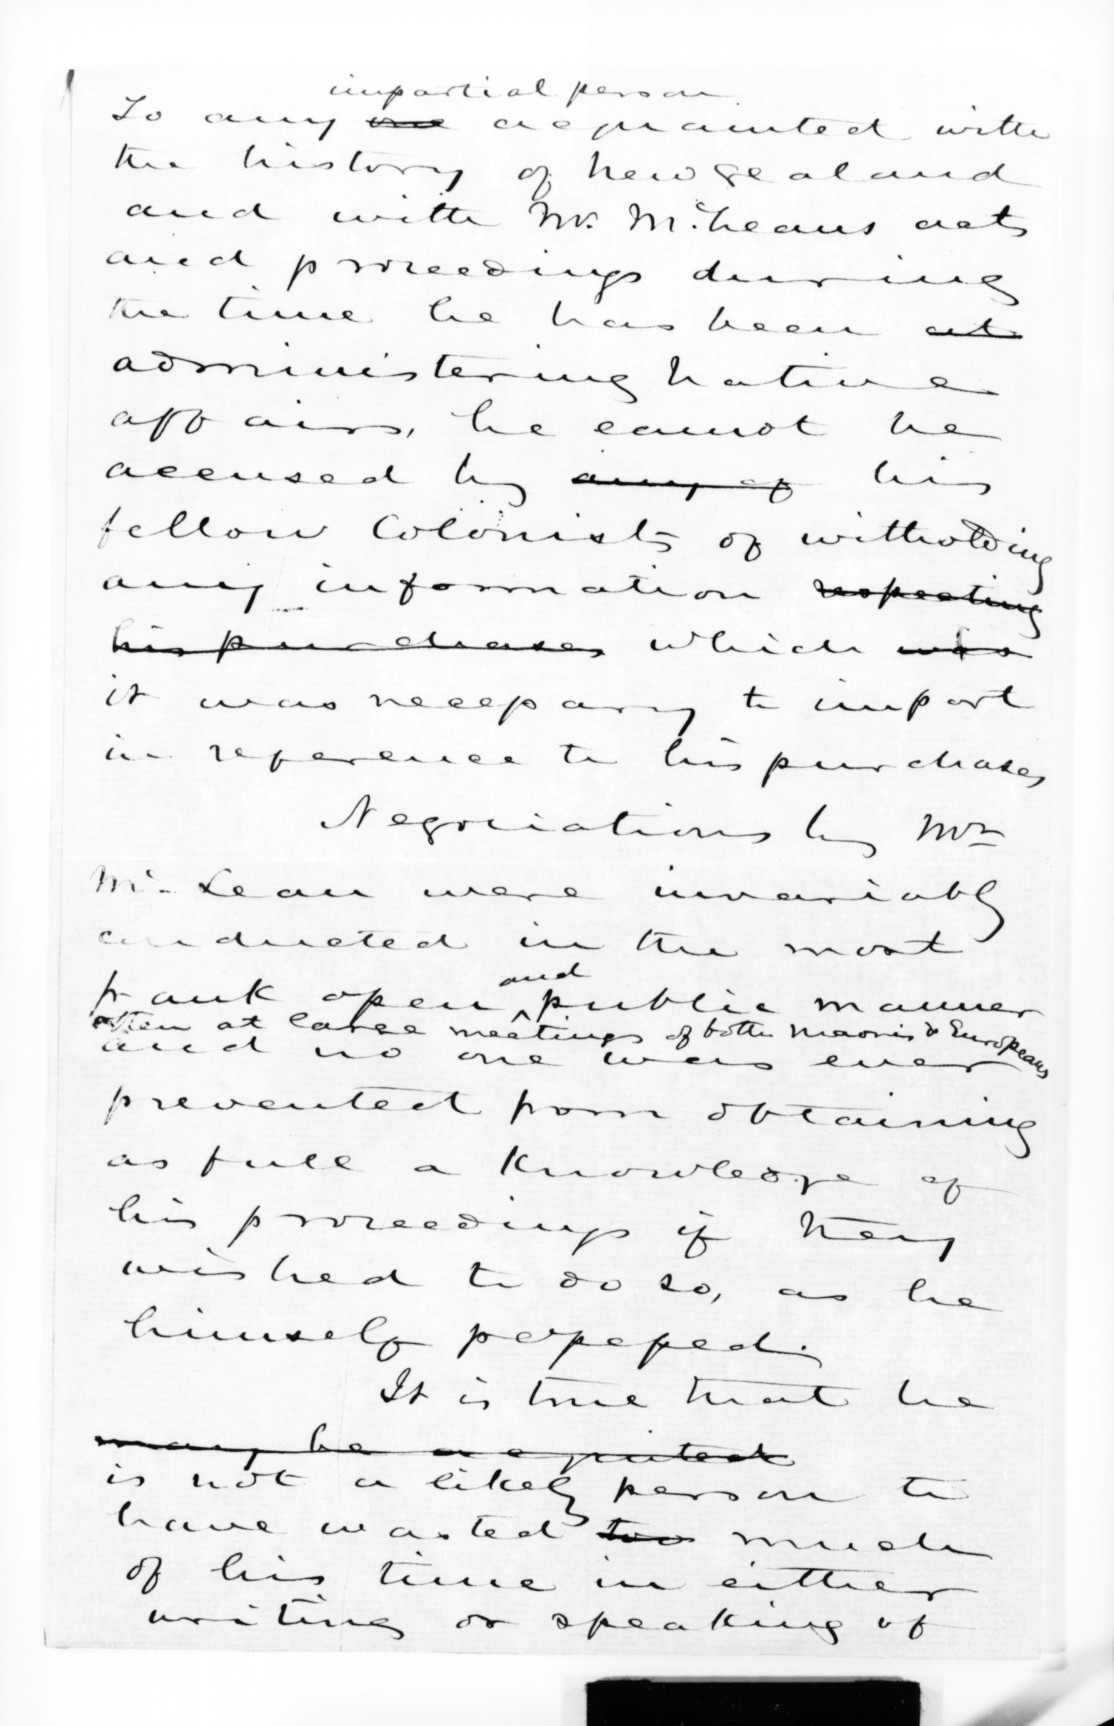 impartial person
To any one acquainted with
the history of New Zealand
and with Mr. McLeans acts
and proceedings during
the time he has been at
administering Native
affairs, he cannot be
accused by any of his
fellow Colonists of witholding
any information respecting
his purchases which was
it was necessary to impart
in reference to his purchases
Negociations by Mr
Mc Lean were invariably
conducted in the most
and
frank open public manner
often at large meetings of both Maoris & Europeans
and no one was ever
prevented from obtaining
as full a knowledge of
his proceedings if they
wished to do so, as he
himself possessed.
It is true that he
may be acquited
is not a likely person to
have wasted too much
of his time in either
writing or speaking of